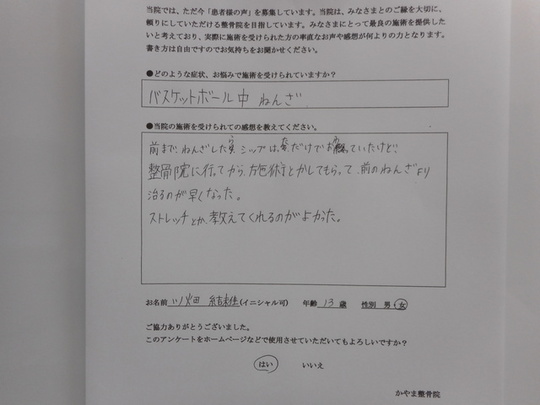 当院では、ただ今「患者様の声」を募集しています。当院は、みなさまとのご縁を大切に、
頼りにしていただける整骨院を目指しています。みなさまにとって最良の施術を提供した
いと考えており、実際に施術を受けられた方の率直なお声や感想が何よりの力となります。
書き方は自由ですのでお気持ちをお聞かせください。
●どのような症状、お悩みで施術を受けられていますか？
バスケットボール中 ねんざ
●当院の施術を受けられての感想を教えてください。
前まで、ねんざしたら、シップは、だけで終っていたけど、
整骨院に行ってから、施術とかしてもらって、前のねんざより
治るのが早くなった。
ストレッチとか、教えてくれるのがよかった。
お名前 畑 (イニシャル可) 年齢 13 歳 性別 男・女
ご協力ありがとうございました。
このアンケートをホームページなどで使用させていただいてもよろしいですか？
はい いいえ
かやま整骨院